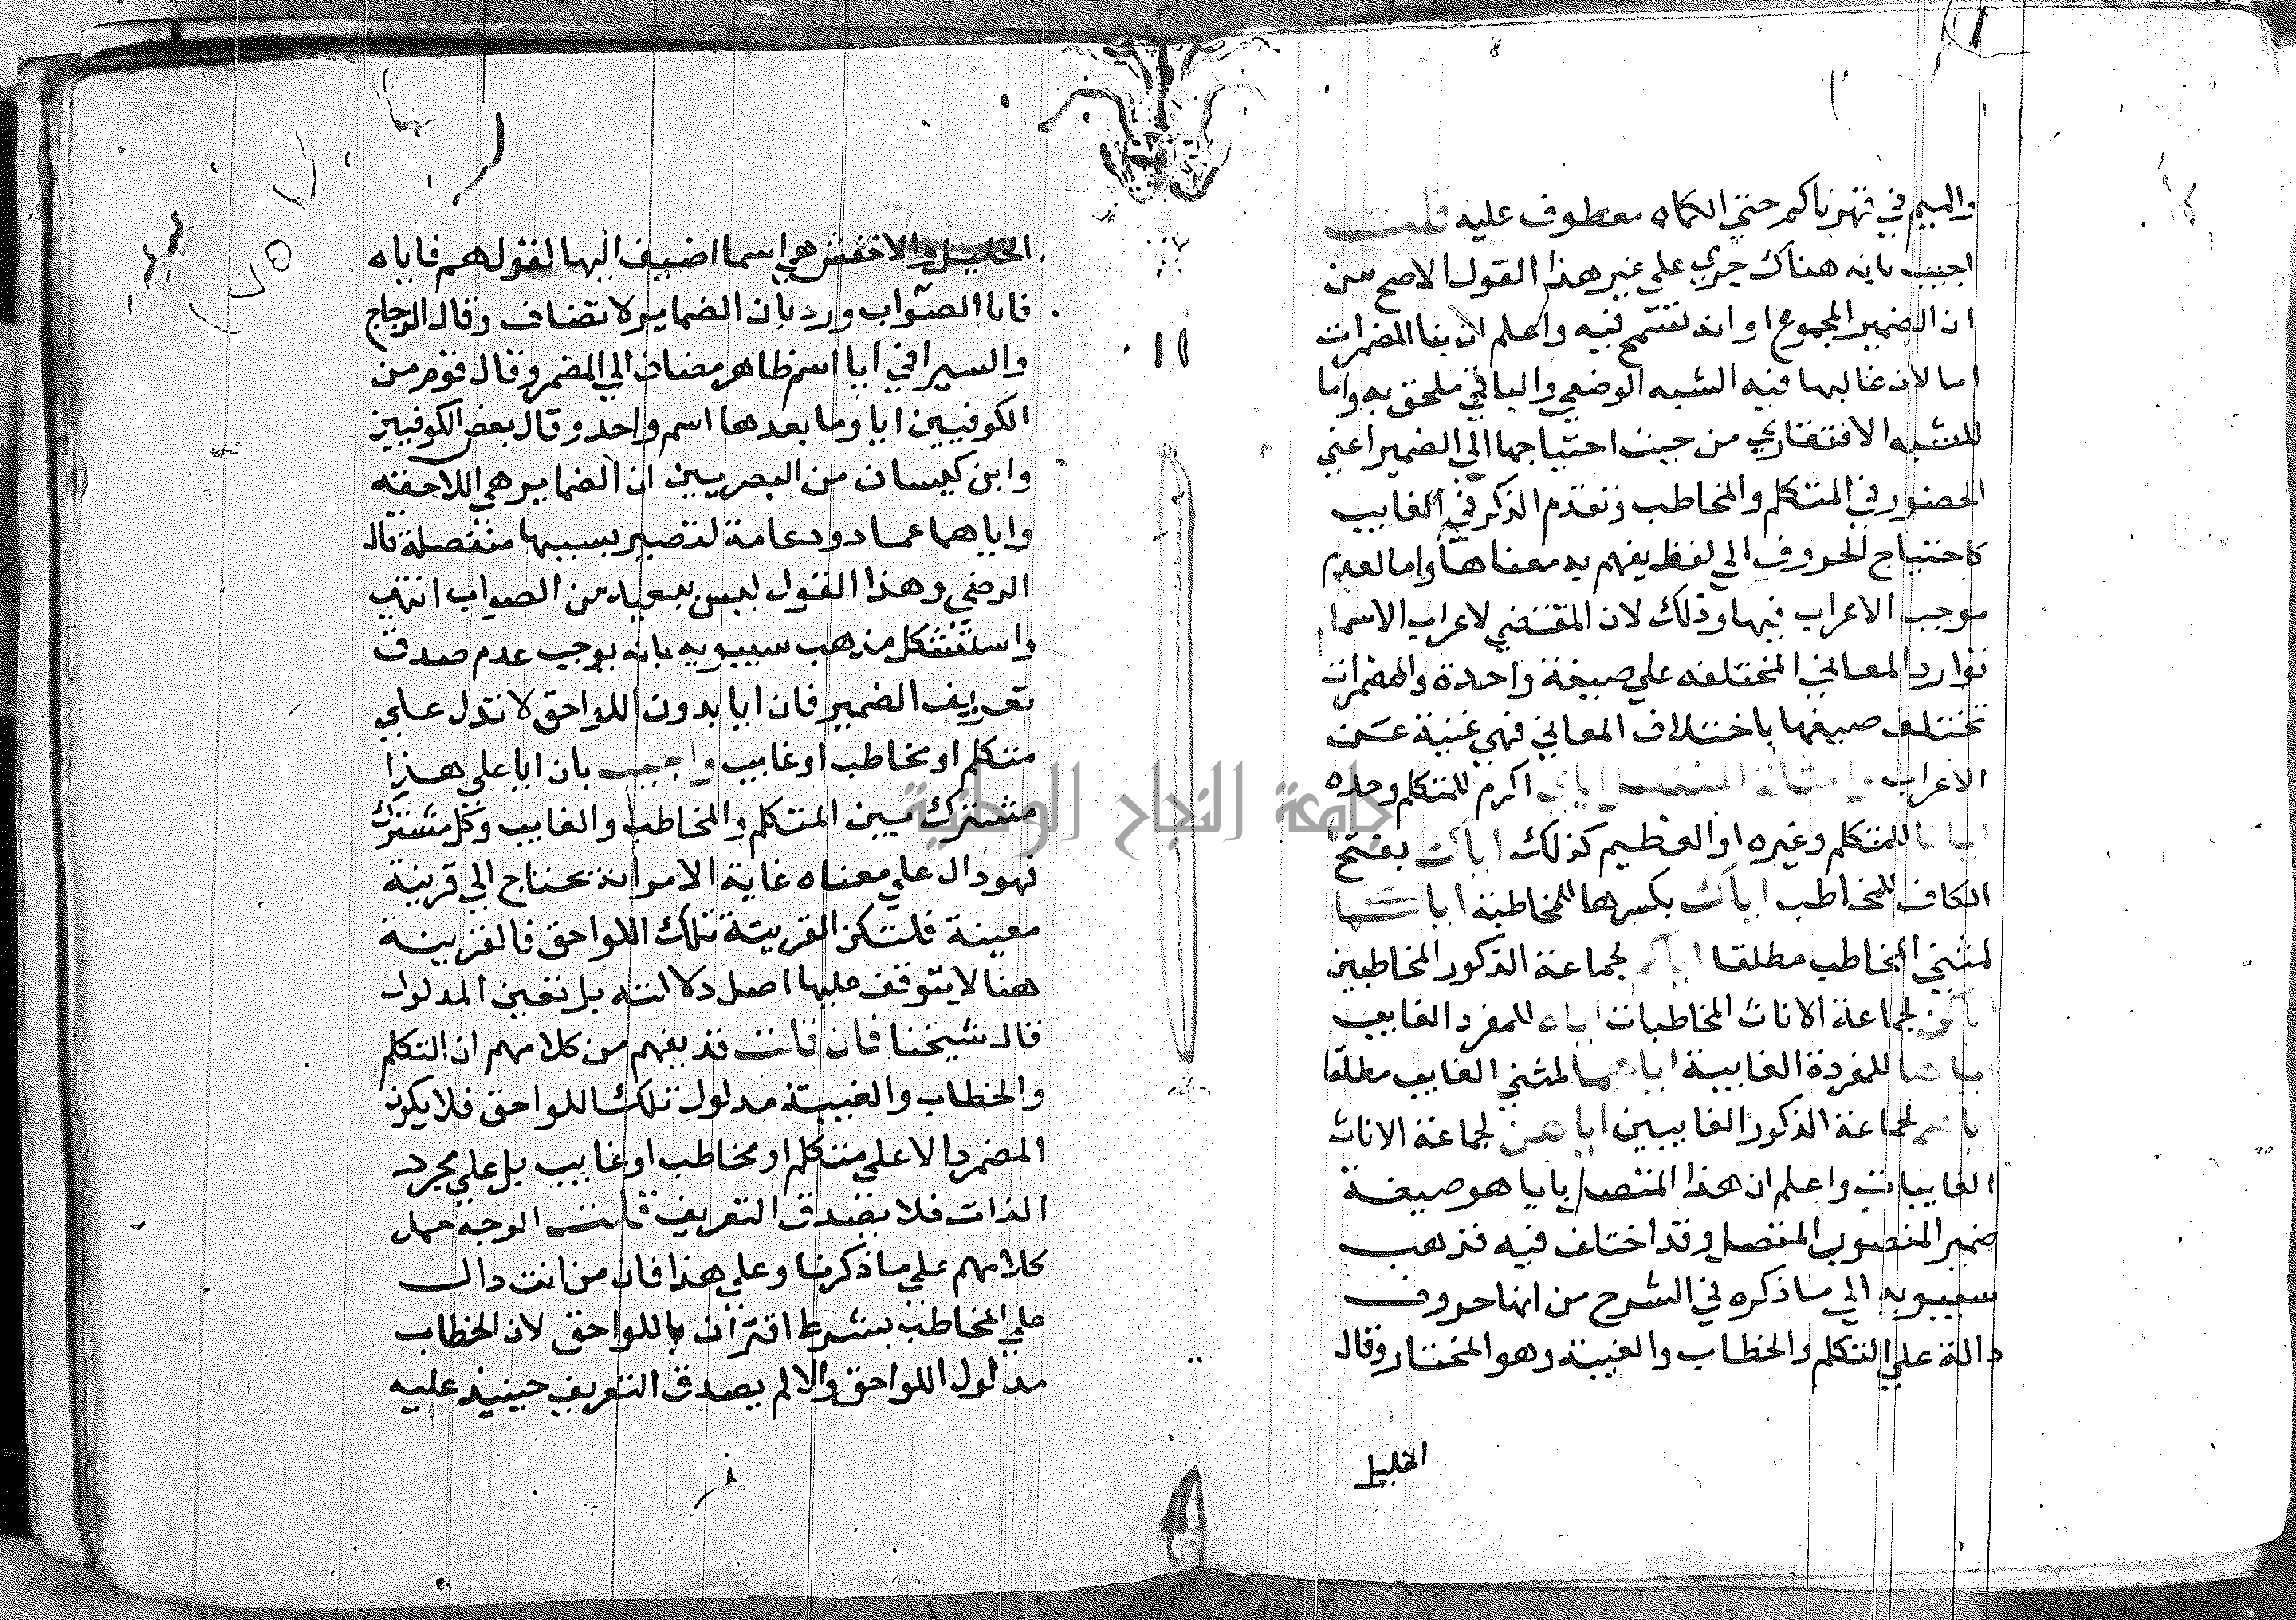 والميم في قهرناكم حتى الكماه معطوف عليه قلت
اجيب بانه هناك جري علي غير هذا القول الاصح من
ان الضمير المجموع او انه تسمح فيه واعلم ان بنا المضمرات
اما لان غالبها فيه الشبه الوضعي والباقي ملحق به واما
للشبه الافتقاري من حيث احتياجها الي الضمير اعني
الحضور في المتكلم والمخاطب وتقدم الذكر في الغايب
كاحتياج الحروف الي لفظ يفهم به معناها واما لعدم
موجب الاعراب فيها وذلك لان المقتضي لاعراب الاسما
توارد المعاني المختلفه علي صيغة واحدة والمضمرات
تختلف صيغها باختلاف المعاني فهي غنية عن
الاعراب وامثلة المنفصل اياي اكرم للمتكلم وحده
ايانا للمتكلم وغيره او العظيم كذلك اياك بفتح
الكاف للمخاطب اياك بكسرها للمخاطبة اياكما
لمثني المخاطب مطلقا اياكم لجماعة الذكور المخاطبين
اياكن لجماعة الاناث المخاطبات اياه للمفرد الغايب
اياها للمفردة الغايبة اياهما لمثني الغايب مطلقا
اياهم لجماعة الذكور الغايبين اياهن لجماعة الاناث
الغايبات واعلم ان هذا المتصل بايا هو صيغة
ضمير المنصوب المنفصل وقد اختلف فيه فذهب
سيبويه الي ما ذكره في الشرح من انها حروف
دالة علي التكلم والخطاب والغيبة وهو المختار وقال
الخليل
الخليل والاخفش هي اسما اضيف اليها لقولهم فاياه
فايا الصواب ورد بان الضماير لا تضاف وقال الزجاج
والسيرافي ايا اسم ظاهر مضاف الي المضمر وقال قوم من
الكوفيين ايا وما بعدها اسم واحد وقال بعض الكوفيين
وابن كيسان من البصريين ان الضماير هي اللاحقه
وايا هما عماد ودعامة لتصير بسببها منفصلة قال
الرضي وهذا القول ليس ببعيد من الصواب انتهي
واستشكل مذهب سيبويه بانه يوجب عدم صدق
تعريف الضمير فان ايا بدون اللواحق لا تدل علي
متكلم او مخاطب او غايب واجيب بان ايا علي هذا
مشترك بين المتكلم والمخاطب والغايب وكل مشترك
فهو دال علي معناه غاية الامر انه يحتاج الي قرينة
معينة فلتكن القرينة تلك اللواحق فالقرينة
هنا لا يتوقف عليها اصل دلالته بل تعين المدلول
قال شيخنا فان قلت قد يفهم من كلامهم ان التكلم
والخطاب والغيبة مدلول تلك اللواحق فلا يكون
المضمر دالا علي متكلم او مخاطب او غايب بل علي مجرد
الذات فلا يصدق التعريف قلت الوجه حمل
كلامهم علي ما ذكرنا وعلي هذا فان من انت دال
علي المخاطب بشرط اقتران باللواحق لان الخطاب
مدلول اللواحق والا لم يصدق التعريف حينيذ عليه
جامعة النجاح الوطنية